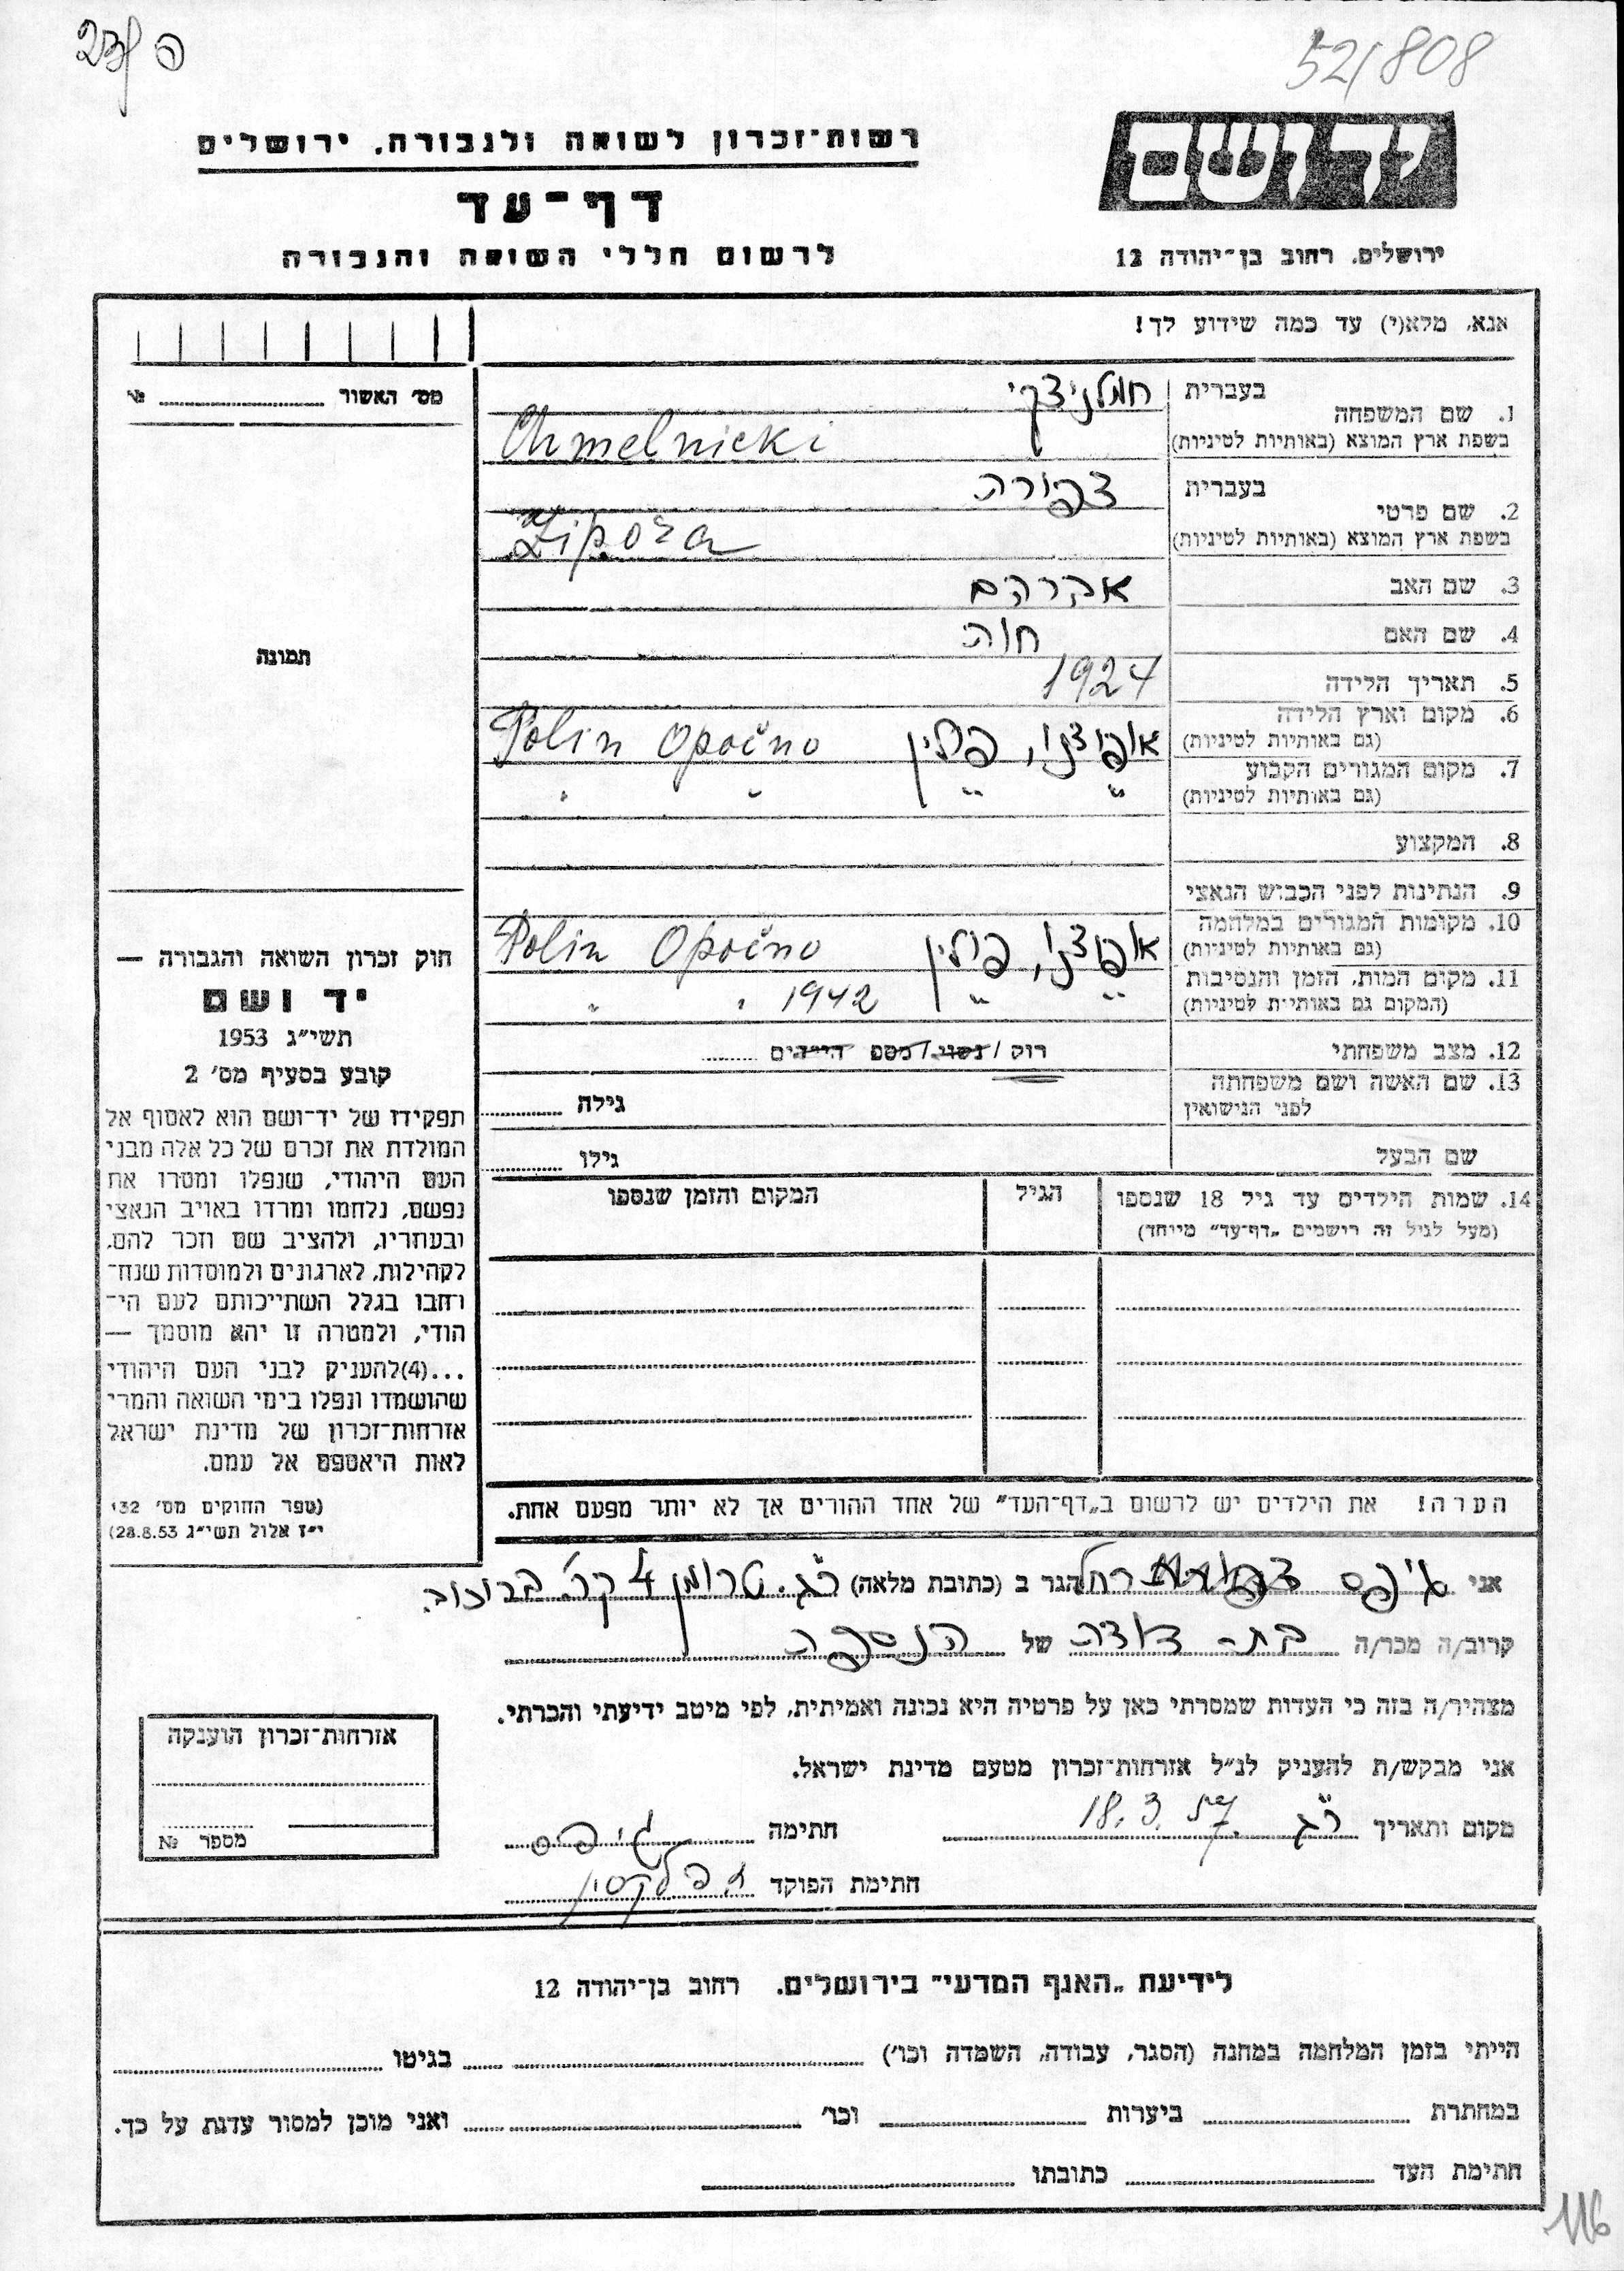 23/ פ
52/808
רשות־זכרון לשואה ולגבורה. ירושלים
דף־עד
לרשום חללי השואה והגבורה
יד ושם
ירושלים, רחוב בן־יהודה 12
אנא, מלא(י) עד כמה שידוע לך!
מס׳ האשור № 
1. שם המשפחה בעברית חמלניצקי
בשפת ארץ המוצא (באותיות לטיניות) Chmelnicki
2. שם פרטי בעברית צפורה
בשפת ארץ המוצא (באותיות לטיניות) Zipora
3. שם האב אברהם
4. שם האם חוה
5. תאריך הלידה 1924
6. מקום וארץ הלידה (גם באותיות לטיניות) אופוצנו, פולין Polin Opočno
7. מקום המגורים הקבוע (גם באותיות לטיניות) " " " "
8. המקצוע
9. הנתינות לפני הכבוש הנאצי
10. מקומות המגורים במלחמה (גם באותיות לטיניות) אופוצנו, פולין Polin Opočno
11. מקום המות, הזמן והנסיבות (המקום גם באותיות לטיניות) " " 1942 " "
12. מצב משפחתי רוק / נשוי / מספר הילדים
13. שם האשה ושם משפחתה לפני הנישואין גילה
שם הבעל גילו
14. שמות הילדים עד גיל 18 שנספו
(מעל לגיל זה רישמים „דף־עד" מייחד)
הגיל
המקום והזמן שנספו
הערה! את הילדים יש לרשום ב„דף־העד" של אחד ההורים אך לא יותר מפעם אחת.
תמונה
חוק זכרון השואה והגבורה —
יד ושם
תשי״ג 1953
קובע בסעיף מס׳ 2
תפקידו של יד־ושם הוא לאסוף אל
המולדת את זכרם של כל אלה מבני
העם היהודי, שנפלו ומסרו את
נפשם, נלחמו ומרדו באויב הנאצי
ובעוזריו, ולהציב שם וזכר להם,
לקהילות, לארגונים ולמוסדות שנח־
רבו בגלל השתייכותם לעם הי־
הודי, ולמטרה זו יהא מוסמך —
...(4)להעניק לבני העם היהודי
שהושמדו ונפלו בימי השואה והמרי
אזרחות־זכרון של מדינת ישראל
לאות היאספם אל עמם.
(ספר החוקים מס׳ 132
י״ז אלול תשי״ג 28.8.53)
אני רחל הגר ב (כתובת מלאה) ר״ג. טרומן 4 קר׳ בורוכוב.
קרוב/ה מכר/ה בת-דודה של הנספה
מצהיר/ה בזה כי העדות שמסרתי כאן על פרטיה היא נכונה ואמיתית, לפי מיטב ידיעתי והכרתי.
אני מבקש/ת להעניק לנ״ל אזרחות־זכרון מטעם מדינת ישראל.
מקום ותאריך ר״ג 18.3.57 חתימה
חתימת הפוקד
אזרחות־זכרון הוענקה
מספר №
לידיעת „האגף המדעי" בירושלים. רחוב בן־יהודה 12
הייתי בזמן המלחמה במחנה (הסגר, עבודה, השמדה וכו׳) בגיטו
במחתרת ביערות וכו׳ ואני מוכן למסור עדות על כך.
חתימת העד כתובתו
116